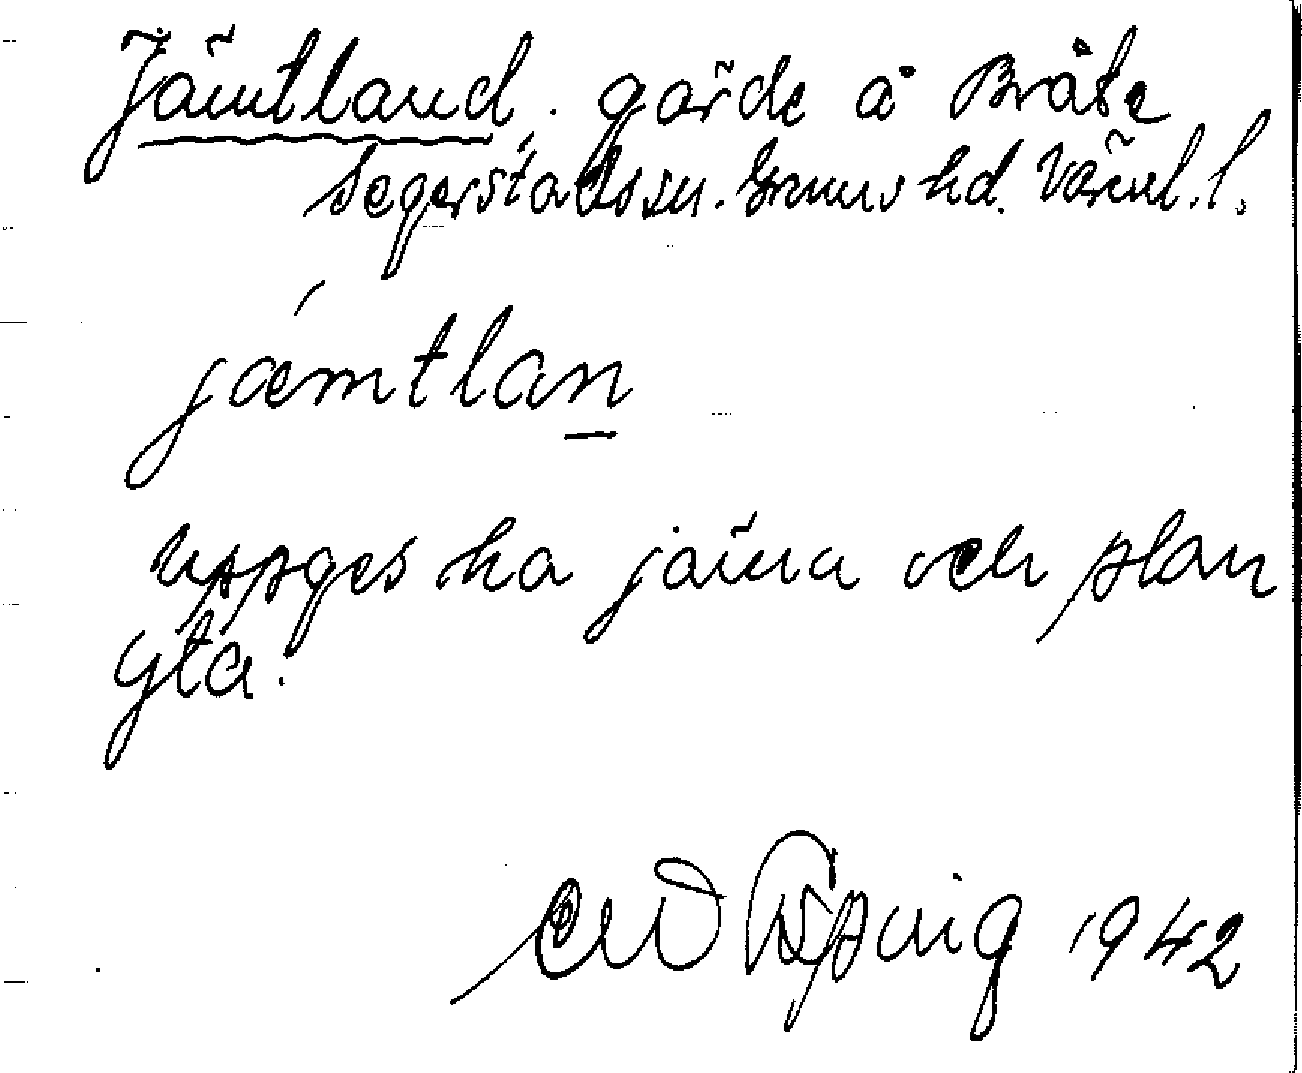 Jämtland. gärde å Bråte
Segerstads sn. Grums hd. Värml. l.
jæmtlan
Uppges ha jämn och plan
yta.
1942